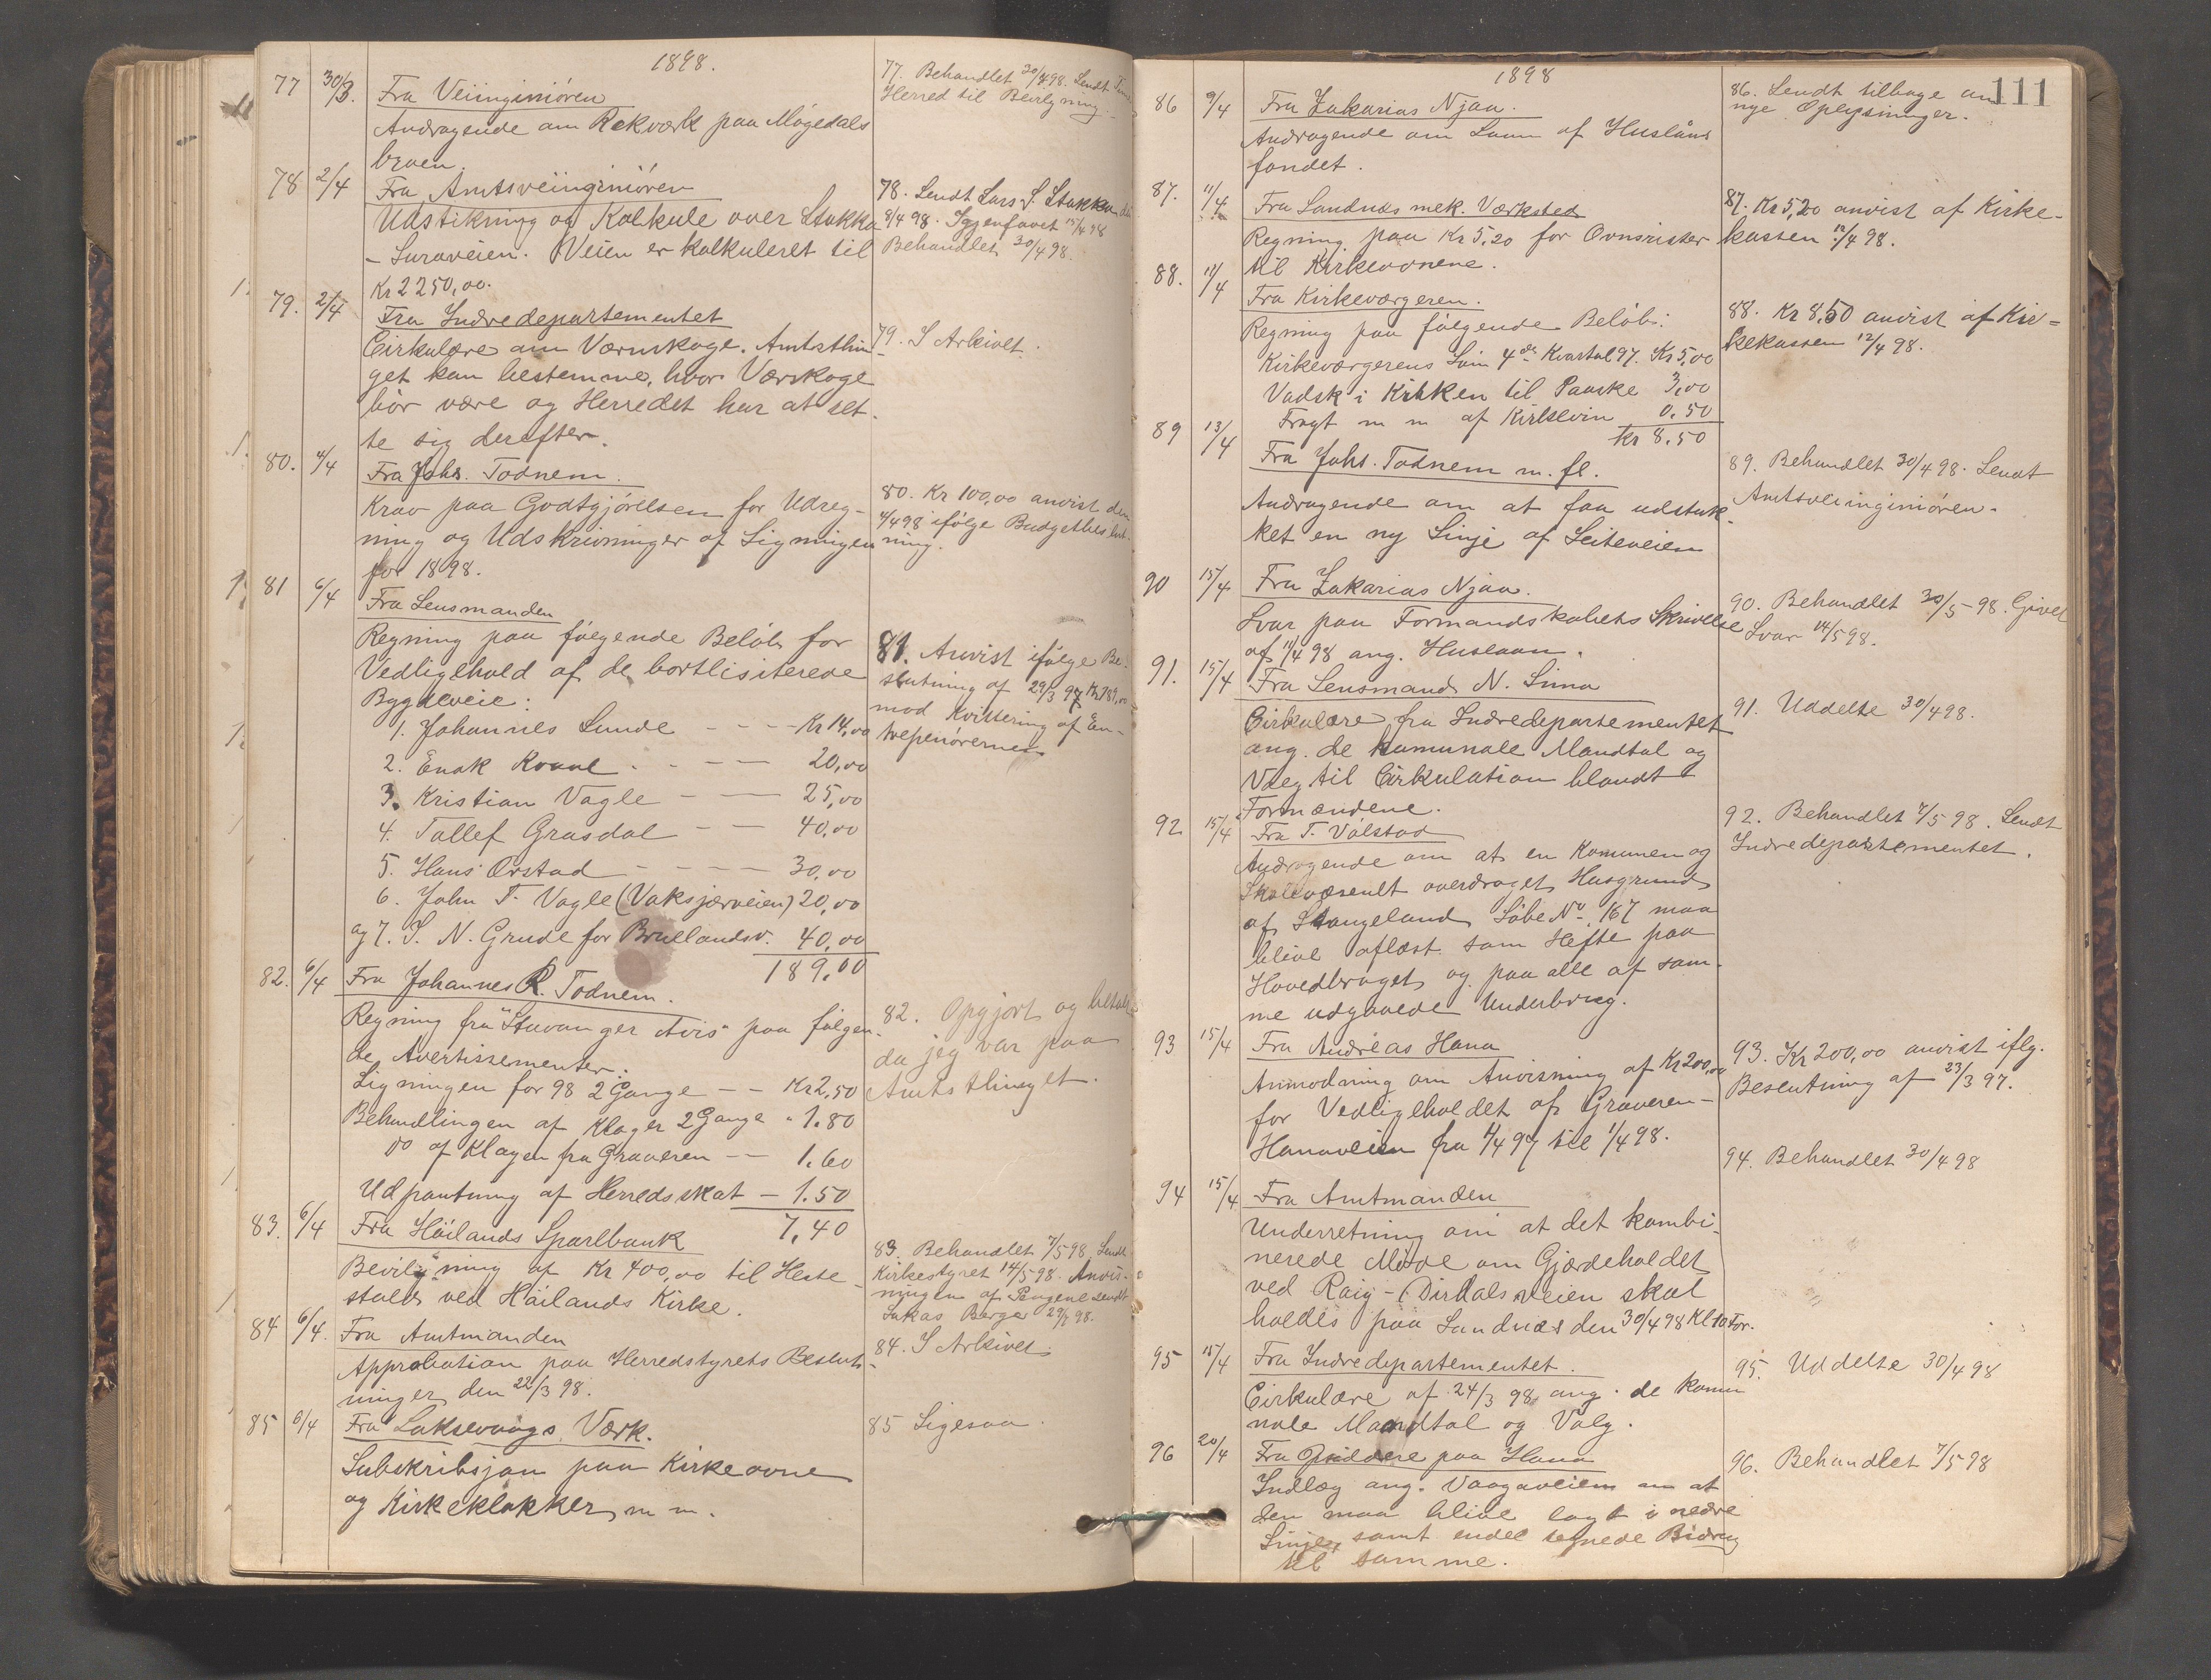 1898.
77 30/3. Fra Veiinginiören
Andragende om Rekværk paa Mögedals
broen.
77. Behandlet 30/4 98. Sendt
Herred til Bevilgning.
78 2/4 Fra Amtsveiinginiören
Udstikning og Kalkule over Stokka
- Suraveien. Veien er kalkuleret til
Kr 2250,00.
78. Sendt Lars S. Stokka
8/4 98. Igjenfaaet 15/4 98
Behandlet 30/4 98.
79. 2/4 Fra Indredepartementet
Cirkulære om Værnskoge. Amtsthin
get kan bestemme, hvor Værskoge
bör være og Herredet har at ret-
te sig derefter.
79. I Arkivet.
80. 4/4 Fra Johs. Todnem.
Krav paa Godtgjörelsen for Udreg-
ning og Udskrivninger af Ligningen
for 1898.
80. Kr 100,00 anvist den
4/4 98 ifölge Budgetbeslut-
ning.
81 6/4 Fra Lensmanden
Regning paa fölgende Belöb for
Vedligehold af de bortlisiterede
Bygdeveie:
1. Johannes Lunde - - - Kr 14,00
2. Enok Kvaal - - - - 20,00
3. Kristian Vagle - - 25,00
4. Tollef Grasdal - - 40,00
5. Hans Orstad - - - - 30,00
6. John T. Vagle (Vaksjærveien) 20,00
og 7. S. N. Grude for Bruelandsv. 40,00
189,00
81. Anvist ifölge Be-
slutning af 29/3 97 Kr 189,00
mod Kvittering af En-
trepenörernes
82. 6/4 Fra Johannes R. Todnem.
Regning fra "Stavanger Avis" paa fölgen-
de Avertissementer:
Ligningen for 98 2 Gange - - Kr 2,50
Behandlingen af Klager 2 Gange " 1.80
Do af Klagen fra Graveren - - 1.60
Udpantning af Herredsskat - 1.50
7,40
82. Opgjort og betalt
da jeg var paa
Amtsthinget.
83. 6/4 Fra Höilands Sparebank
Bevilgning af Kr 400,00 til Heste-
stald ved Höilands Kirke.
83. Behandlet 7/5 98 Sendt
Kirkestyret 14/5 98. Anvis-
ningen af Pengene sendt
Lukas Berge 29/ 98.
84 6/4. Fra Amtmanden
Approbation paa Herredstyrets Beslut-
ninger den 22/3 98.
84. I Arkivet.
85 6/4 Fra Laksevaags Værk.
Subskribsjon paa Kirkeovne
og Kirkeklokker m m.
85 Ligesaa.
111
1898
86 9/4 Fra Zakarias Njaa.
Andragende om Laan af Huslåns
fondet.
86. Sendt tilbage om
nye Oplysninger.
87. 11/4 Fra Sandnæs mek. Værksted
Regning paa Kr 5,20 for Ovnsrister
til Kirkeovnene.
87. Kr 5,20 anvist af Kirke-
kassen 12/4 98.
88. 11/4 Fra Kirkeværgeren.
Regning paa fölgende Belöb:
Kirkeværgerens Lön 4de Kvartal 97. Kr 5,00
Vadsk i Kirken til Paaske 3,00
Fragt m m af Kirkevin 0.50
kr 8.50
88. Kr 8,50 anvist af Kir-
kekassen 12/4 98.
89 13/4 Fra Johs. Todnem m. fl.
Andragende om at faa udstuk-
ket en ny Linje af Leiteveien
89. Behandlet 30/4 98. Sendt
Amtsveiinginiören.
90 15/4 Fra Zakarias Njaa.
Svar paa Formandskabets Skrivelse
af 11/4 98 ang. Huslaan.
90. Behandlet 30/5 98. Givet
Svar 14/5 98.
91. 15/4 Fra Lensmand N. Lima
Cirkulære fra Indredepartementet
ang. de kumunale Mandtal og
Valg til Cirkulation blandt
Formændene.
91. Uddelte 30/4 98.
92 15/4 Fra T. Välstad
Andragende om at en Komunen og
Skolevæsenet overdraget Husgrund
af Stangeland Löbe No 167 maa
blive aflöst som Hefte paa
Hovedbruget og paa alle af sam-
me udgaaede Underbrug.
92. Behandlet 7/5 98. Sendt
Indredepartementet.
93 15/4 Fra Andreas Hana
Anmodning om Anvisning af Kr 200,00
for Vedligeholdet af Graveren-
Hanaveien fra 1/4 97 til 1/4 98.
93. Kr 200,00 anvist iflg.
Beslutning af 23/3 97.
94 15/4 Fra Amtmanden
Underretning om at det kombi-
nerede Möde om Gjærdeholdet
ved Raig - Dirdalsveien skal
holdes paa Sandnæs den 30/4 98 Kl 10 For.
94. Behandlet 30/4 98
95 15/4 Fra Indredepartementet.
Cirkulære af 24/3 98 ang. de komu
nale Mandtal og Valg.
95. Uddelte 30/4 98
96 20/4 Fra Opsiddere paa Hana
Indlæg ang. Vaagaveien om at
den maa blive lagt i nedre
Linje, samt endel tegnede Bidrag
til samme.
96. Behandlet 7/5 98